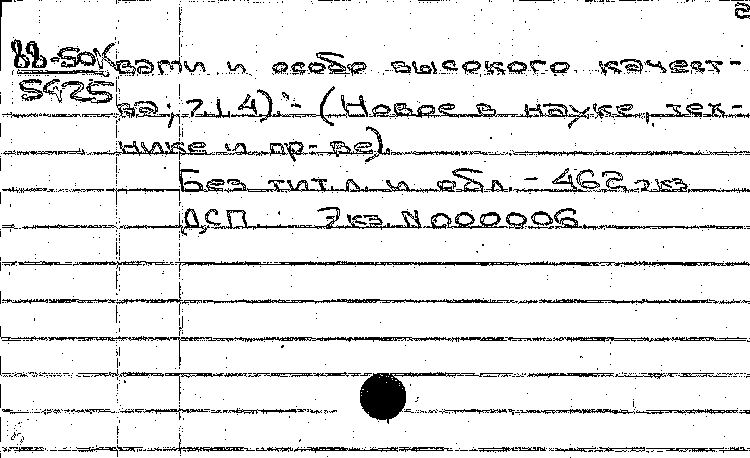 2
88-50К
5925
вами и особо высокого качест-
ва; 7.1.4).- (Новое в науке, тех-
нике и пр-ве).
Без тит.л. и обл. - 462 экз
ДСП. Экз. N 000006.